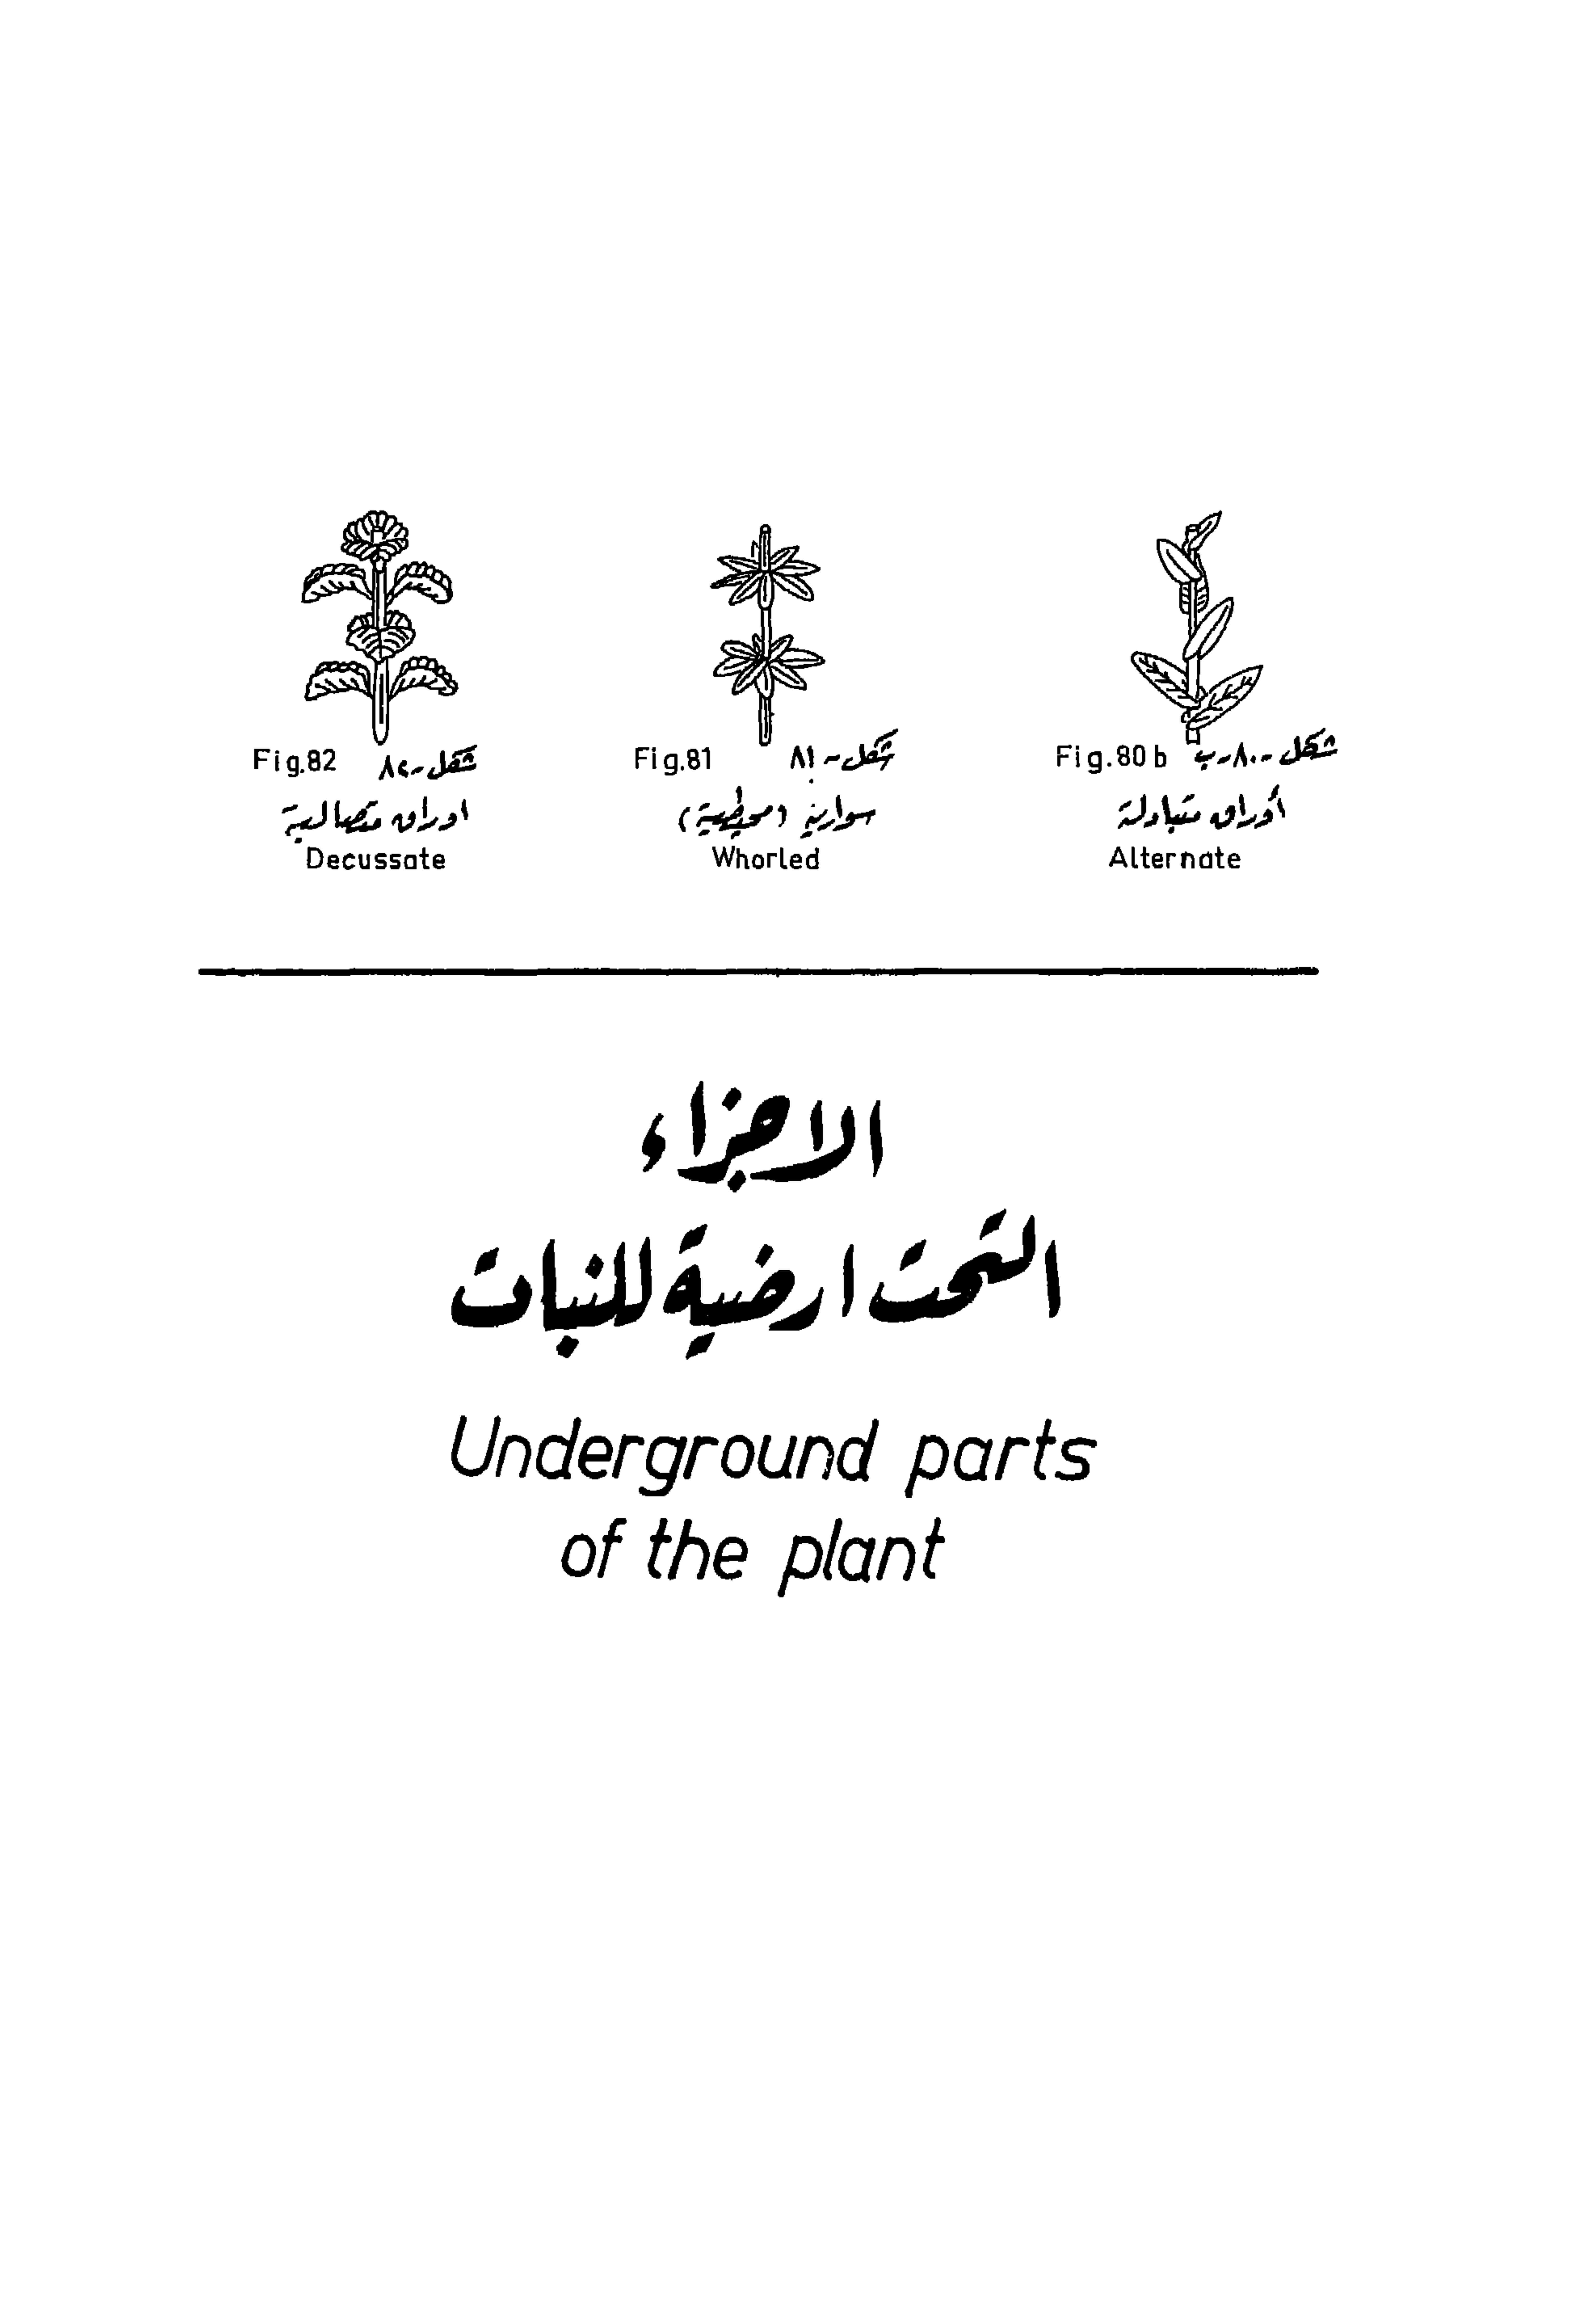 Fig.82 شكل-٨٢
اوراق متصالبة
Decussate
Fig.81 شكل-٨١
سوارية (محيطية)
Whorled
Fig.80 b شكل-٨٠-ب
أوراق متبادلة
Alternate
الاجزاء
التحت ارضية للنبات
Underground parts
of the plant